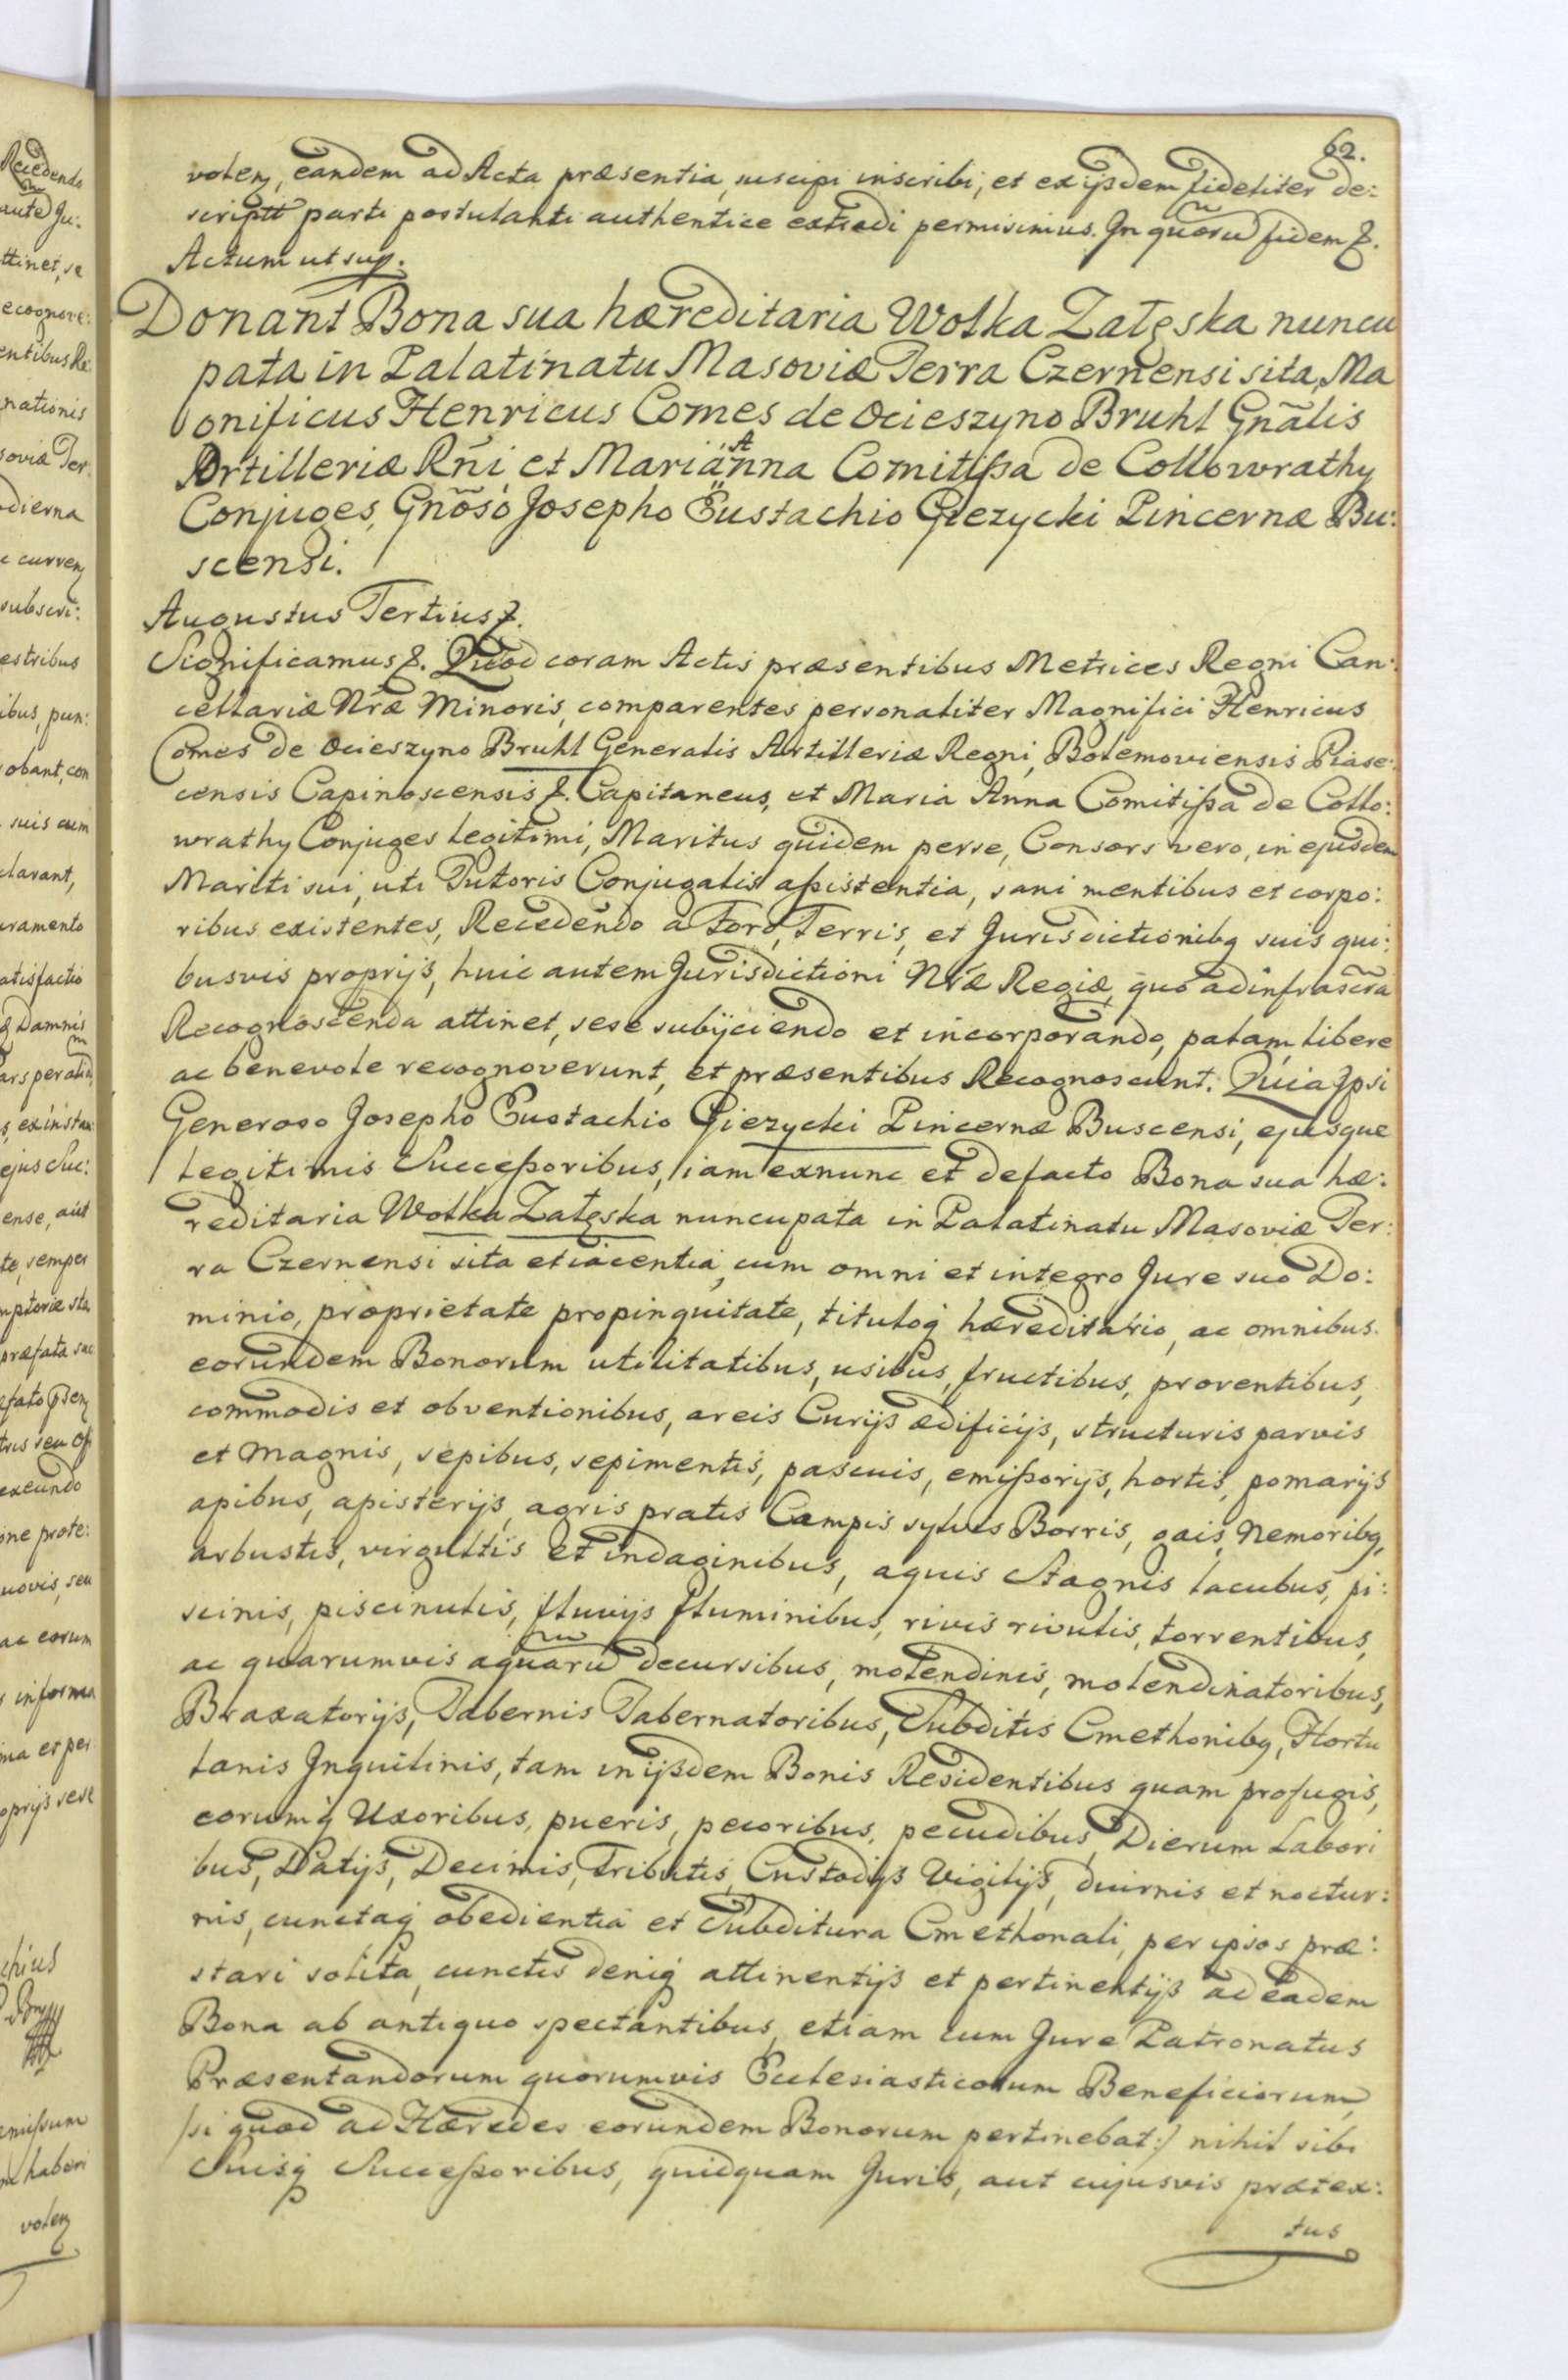 62.
volen, eandem ad Acta præsentia, suscipi inscribi, et ex ijsdem fideliter de:
scriptt parti postulanti authentice extradi permisimus. In quoru fidem &.
Actum ut sup.
Donant Bona sua hæreditaria Wolka Załęska nuncu
pata in Palatinatu Masoviæ Terra Czernensi sita, Ma
gnificus Henricus Comes de Ocieszyno Bruhl Gnãlis
Artilleriæ Rñi, et Marianna Comitißa de Collowrathy
Conjuges, Gnõso Josepho Eustachio Giezycki Pincernæ Bu:
scensi.
Augustus Tertius &.
Significamus &. Quod coram Actis præsentibus Metrices Regni Can:
cellariæ Nræ Minoris, comparentes personaliter Magnifici Henricus
Comes de Ocieszyno Bruhl Generalis Artilleriæ Regni, Bolemoviensis Piase:
censis Capinoscensis &. Capitaneus, et Maria Anna Comitißa de Collo:
wrathy Conjuges legitimi, Maritus quidem perse, Consors vero, in ejusdem
Mariti sui, uti Tutoris Conjugalis aßistentia, sani mentibus et corpo:
ribus existentes, Recedendo a Foro, Terris, et Jurisdictionibq suis qui:
busvis proprijs, huic autem Jurisdictioni Nræ Regiæ, quo ad infrascra
Recognoscenda attinet, sese subijciendo et incorporando, palam, libere
ac benevole recognoverunt, et præsentibus Recognoscunt. Quia Ipsi
Generoso Josepho Eustachio Giezycki Pincernæ Buscensi, ejusque
legitimis Succeßoribus, iam exnunc et defacto Bona sua hæ:
reditaria Wolka Załęska nuncupata in Palatinatu Masoviæ Ter:
ra Czernensi sita et iacentia, cum omni et integro Jure suo Do:
minio, proprietate propinquitate, tituloq hæreditario, ac omnibus
eorundem Bonorum utilitatibus, usibus, fructibus, proventibus,
commodis et obventionibus, areis Curijs ædificijs, structuris parvis
et magnis, sepibus, sepimentis, pascuis, emißorijs, hortis, pomarijs
apibus, apisterijs, agris pratis Campis sylvis Borris, gais, Nemoribq,
arbustis, virgultis et indaginibus, aquis Stagnis lacubus, pi:
scinis, piscinulis, fluvijs fluminibus, rivis rivulis, torrentibus,
ac quarumvis aquaru decursibus, molendinis, molendinatoribus,
Braxatorijs, Tabernis Tabernatoribus, Subditis Cmethonibq, Hortu
lanis Inquilinis, tam in ijsdem Bonis Residentibus quam profugis,
eorumq Uxoribus, pueris, pecoribus, pecudibus, Dierum Labori
bus, Datijs, Decimis, Tributis, Custodijs Vigilijs, diurnis et noctur:
nis, cunctaq obedientia et Subditura Cmethonali, per ipsos præ:
stari solita, cunctis deniq attinentijs et pertinentijs ad eadem
Bona ab antiquo spectantibus, etiam cum Jure Patronatus
Præsentandorum quorumvis Ecclesiasticorum Beneficiorum,
/si quod ad Hæredes eorundem Bonorum pertinebat:/ nihil sibi
Suisq Succeßoribus, quidquam Juris, aut cujusvis prætex:
tus